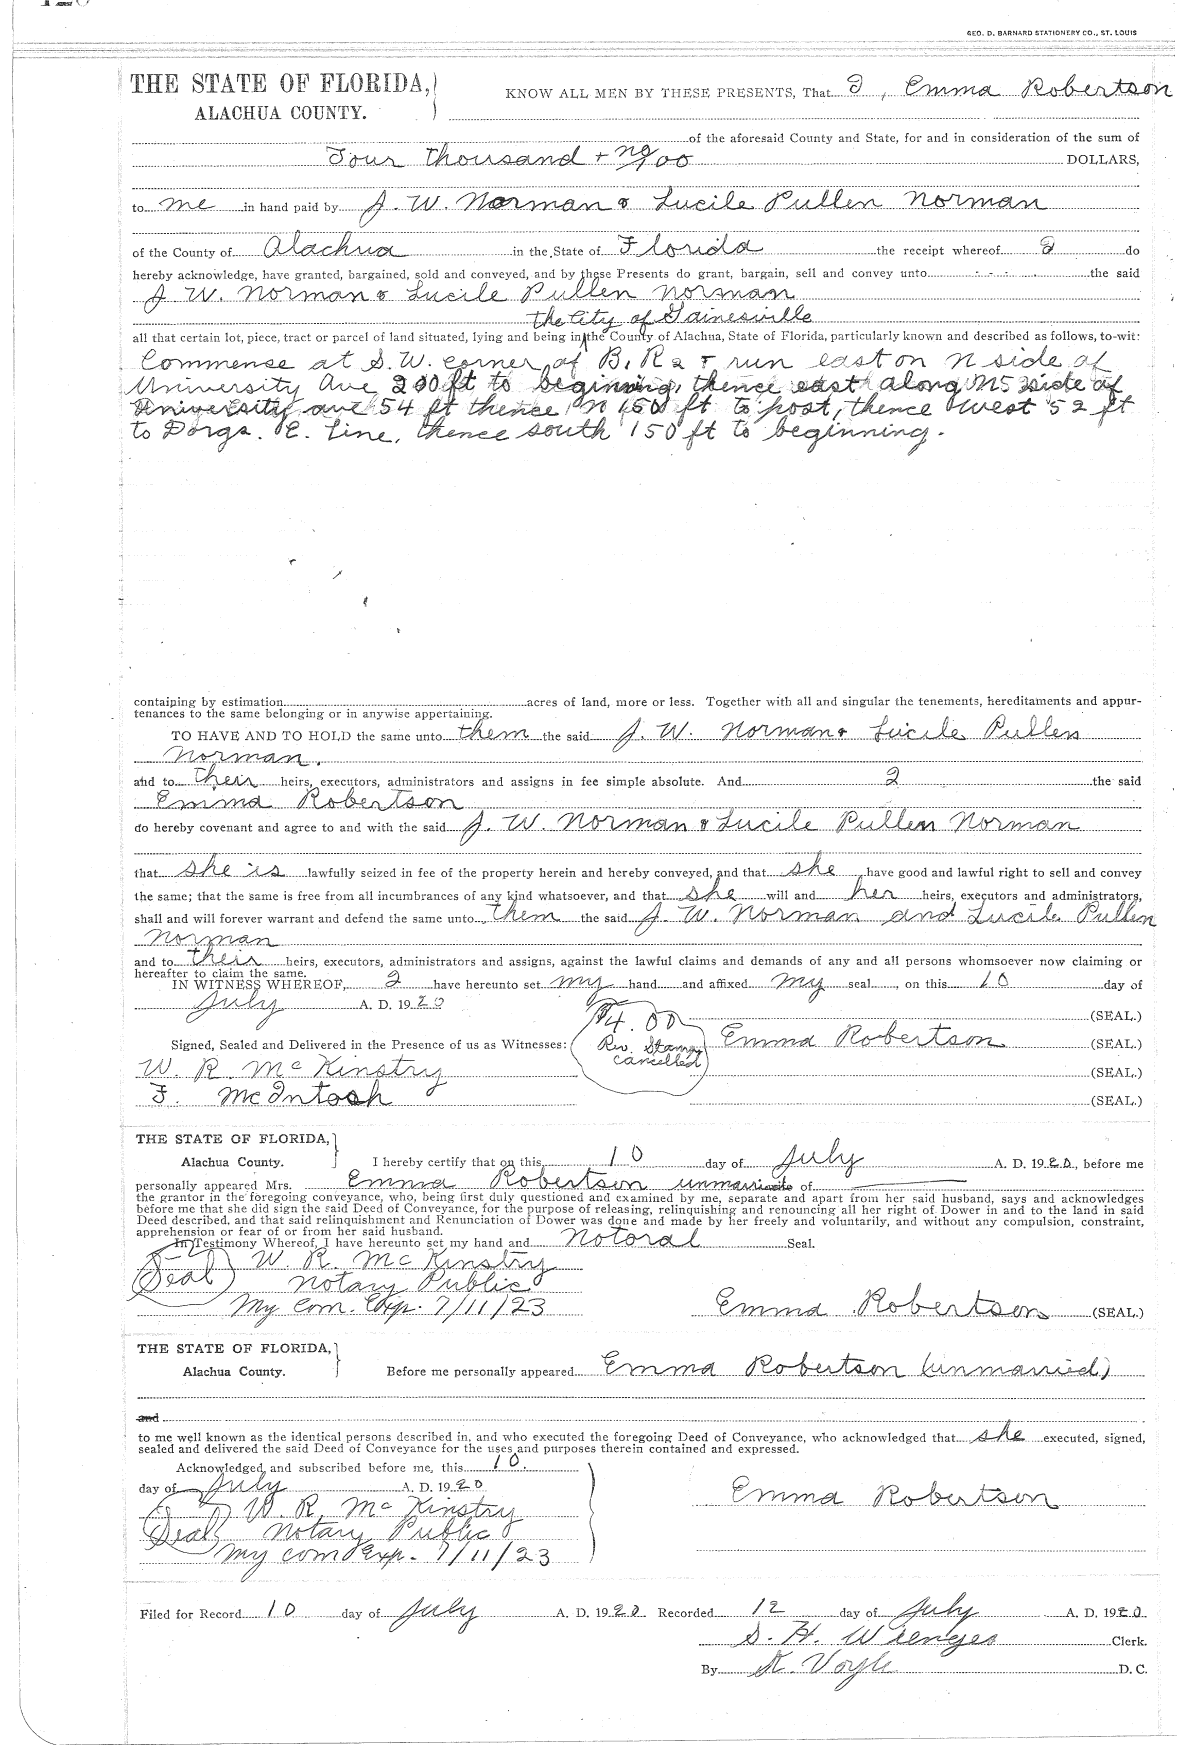 GEO. D. BARNARD STATIONERY CO., ST. LOUIS
THE STATE OF FLORIDA,
KNOW ALL MEN BY THESE PRESENTS, That I, Emma Robertson
ALACHUA COUNTY.
of the aforesaid County and State, for and in consideration of the sum of
Four thousand + no/00 DOLLARS,
to me in hand paid by J. W. Norman & Lucile Pullen Norman
of the County of Alachua in the State of Florida the receipt whereof I do
hereby acknowledge, have granted, bargained, sold and conveyed, and by these Presents do grant, bargain, sell and convey unto the said
J. W. Norman & Lucile Pullen Norman
the City of Gainesville
all that certain lot, piece, tract or parcel of land situated, lying and being in the County of Alachua, State of Florida, particularly known and described as follows, to-wit:
Commense at S.W. corner of B, R 2 + run east on N side of
University Ave 200 ft to beginning, thence east along side of
University ave 54 ft thence N 150 ft to post, thence West 52 ft
to E. Line, thence south 150 ft to beginning.
containing by estimation acres of land, more or less. Together with all and singular the tenements, hereditaments and appur-
tenances to the same belonging or in anywise appertaining.
TO HAVE AND TO HOLD the same unto them the said J. W. Norman & Lucile Pullen
Norman.
and to their heirs, executors, administrators and assigns in fee simple absolute. And I the said
Emma Robertson
do hereby covenant and agree to and with the said J. W. Norman & Lucile Pullen Norman
that she is lawfully seized in fee of the property herein and hereby conveyed, and that she have good and lawful right to sell and convey
the same; that the same is free from all incumbrances of any kind whatsoever, and that she will and her heirs, executors and administrators,
shall and will forever warrant and defend the same unto them the said J. W. Norman and Lucile Pullen
Norman
and to their heirs, executors, administrators and assigns, against the lawful claims and demands of any and all persons whomsoever now claiming or
hereafter to claim the same.
IN WITNESS WHEREOF, I have hereunto set my hand and affixed my seal, on this 10 day of
July A. D. 1920
$4.00 (SEAL.)
Signed, Sealed and Delivered in the Presence of us as Witnesses: Rev. Stamp Emma Robertson (SEAL.)
cancelled
W. R. McKinstry (SEAL.)
F. McIntosh (SEAL.)
THE STATE OF FLORIDA,
Alachua County. I hereby certify that on this 10 day of July A. D. 1920, before me
personally appeared Mrs. Emma Robertson unmarried of
the grantor in the foregoing conveyance, who, being first duly questioned and examined by me, separate and apart from her said husband, says and acknowledges
before me that she did sign the said Deed of Conveyance, for the purpose of releasing, relinquishing and renouncing all her right of Dower in and to the land in said
Deed described, and that said relinquishment and Renunciation of Dower was done and made by her freely and voluntarily, and without any compulsion, constraint,
apprehension or fear of or from her said husband.
In Testimony Whereof, I have hereunto set my hand and Notoral Seal.
Seal W. R. McKinstry
Notary Public
My Com. Exp. 7/11/23 Emma Robertson (SEAL.)
THE STATE OF FLORIDA,
Alachua County. Before me personally appeared Emma Robertson (unmarried)
and
to me well known as the identical persons described in, and who executed the foregoing Deed of Conveyance, who acknowledged that she executed, signed,
sealed and delivered the said Deed of Conveyance for the uses and purposes therein contained and expressed.
Acknowledged and subscribed before me, this 10.
day of July A. D. 1920
Emma Robertson
W. R. McKinstry
Seal Notary Public
My com Exp. 7/11/23
Filed for Record 10 day of July A. D. 1920 Recorded 12 day of July A. D. 1920
S. H. Wienges Clerk.
By Voyle D. C.